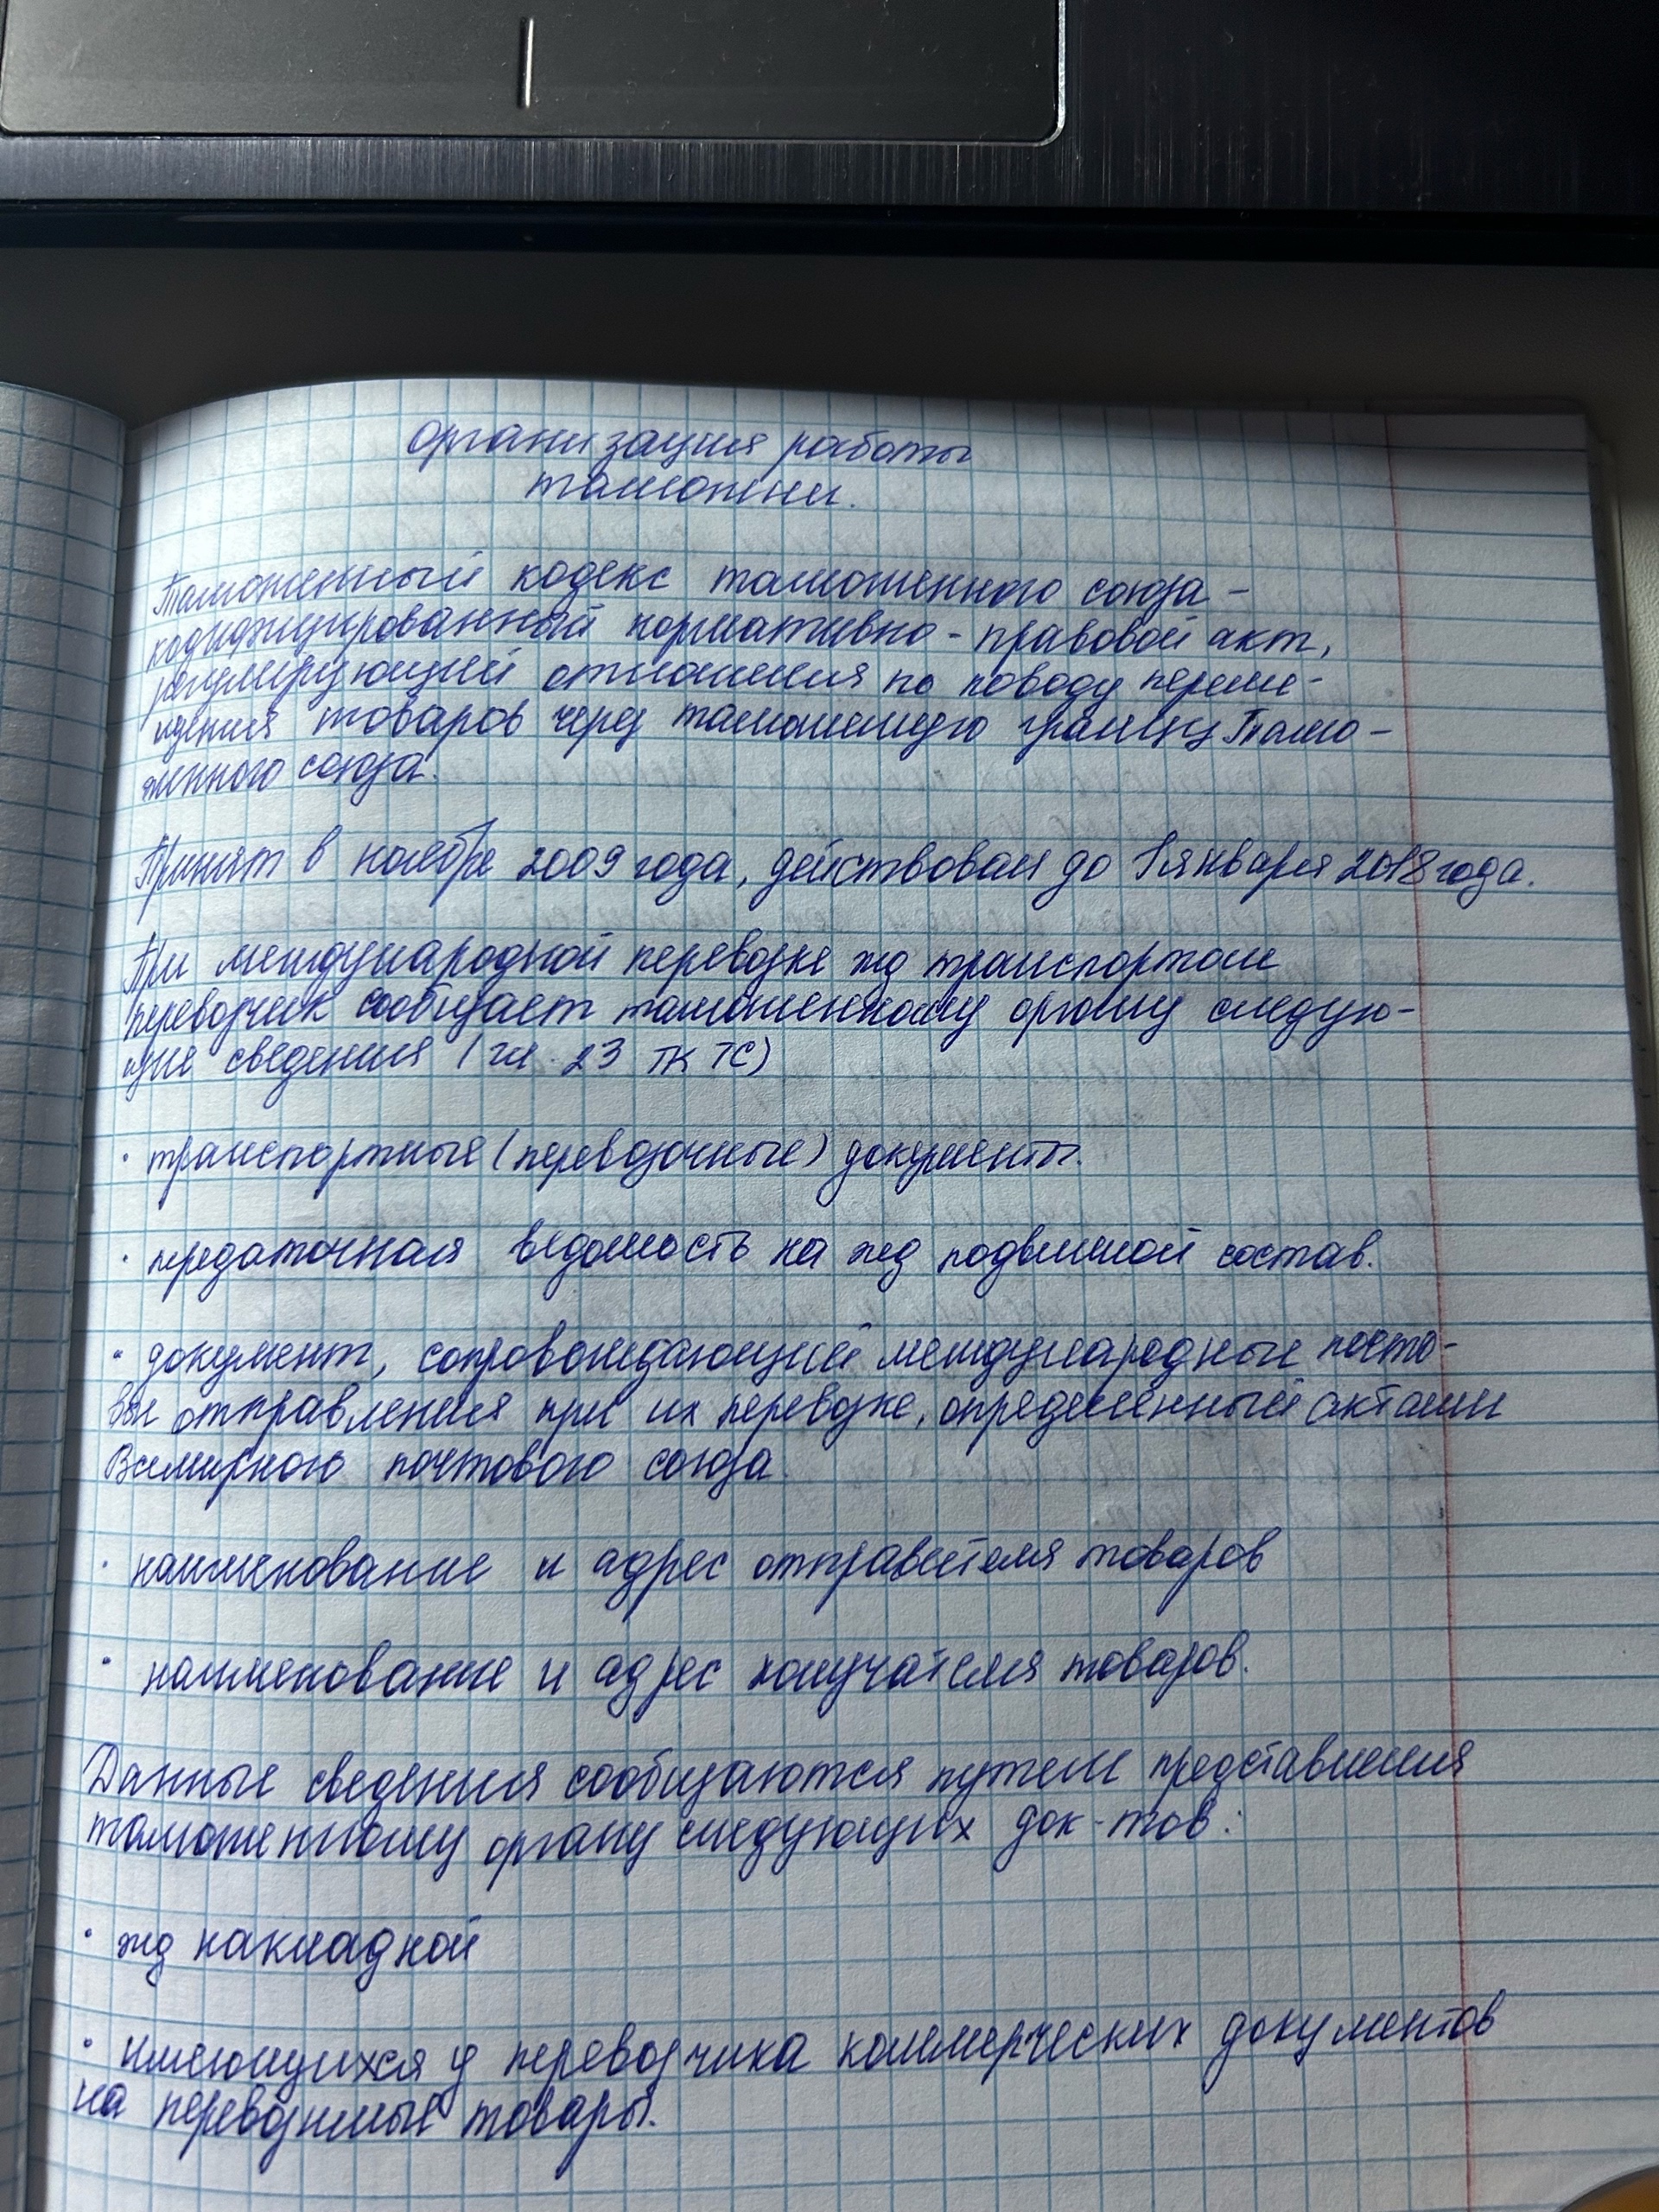 Организация работы
таможни.
Таможенный кодекс таможенного союза -
кодифицированный нормативно - правовой акт,
регулирующий отношения по поводу переме-
щения товаров через таможенную границу Тамо-
женного союза.
Принят в ноябре 2009 года, действовал до 1 января 2018 года.
При международной перевозке жд транспортом
перевозчик сообщает таможенному органу следую-
щие сведения (гл. 23 ТК ТС)
· транспортные (перевозочные) документы.
· передаточная ведомость на жд подвижной состав.
· документ, сопровождающий международные почто-
вые отправления при их перевозке, определенный актами
Всемирного почтового союза.
· наименование и адрес отправителя товаров
· наименование и адрес получателя товаров.
Данные сведения сообщаются путем представления
таможенному органу следующих док-тов:
· жд накладной
· имеющихся у перевозчика коммерческих документов
на перевозимые товары.